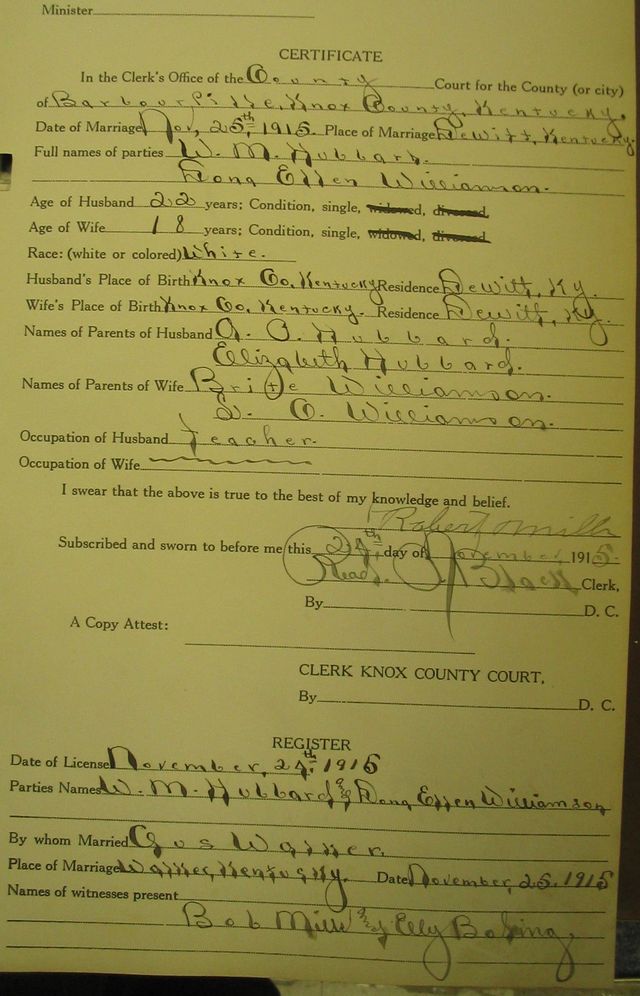 Minister
CERTIFICATE
In the Clerk's Office of the County Court for the County (or city)
of Barbourville, Knox County, Kentucky.
Date of Marriage Nov, 25th, 1915. Place of Marriage Dewitt, Kentucky.
Full names of parties W. M. Hubbard.
Dona Ellen Williamson.
Age of Husband 22 years; Condition, single, widowed, divorced
Age of Wife 18 years; Condition, single, widowed, divorced
Race: (white or colored) White.
Husband's Place of Birth Knox Co, Kentucky Residence Dewitt, Ky.
Wife's Place of Birth Knox Co, Kentucky. Residence Dewitt, Ky.
Names of Parents of Husband Hubbard.
Elizabeth Hubbard.
Names of Parents of Wife Williamson.
Williamson.
Occupation of Husband Teacher.
Occupation of Wife
I swear that the above is true to the best of my knowledge and belief.
Robert Mills
Subscribed and sworn to before me this 24th day of November 1915.
Read. Clerk,
By D. C.
A Copy Attest:
CLERK KNOX COUNTY COURT,
By D. C.
REGISTER
Date of License November, 24th, 1915
Parties Names W. M. Hubbard & Dona Ellen Williamson
By whom Married Gus
Place of Marriage Kentucky. Date November, 25, 1915
Names of witnesses present
Bob Mills & Elly